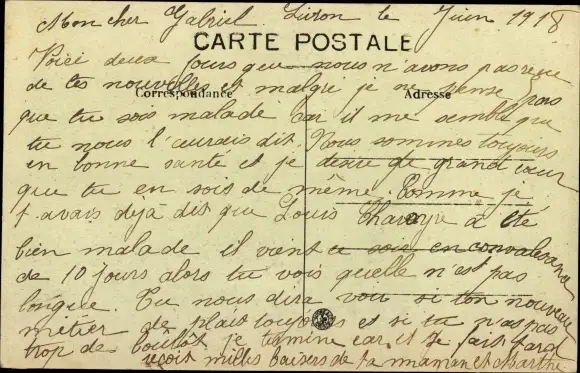 Mon cher Gabriel Livron le Juin 1918
CARTE POSTALE
Voici deux jours que nous n'avons pas reçu
de tes nouvelles et malgre je ne pense pas
Correspondance
Adresse
que tu sois malade car il me semble que
tu nous l'aurais dit. Nous sommes toujours
en bonne santé et je désire de grand cœur
que tu en sois de même. Comme je
t'avais déjà dit que Louis a été
bien malade il vient ce soir en convalescence
de 10 jours alors tu vois quelle n'est pas
longue. Tu nous dira voir si ton nouveau
métier de plait toujours et si tu n'as pas
trop de boulot. je termine car il se fait tard
reçoit milles baisers de ta maman et Marthe